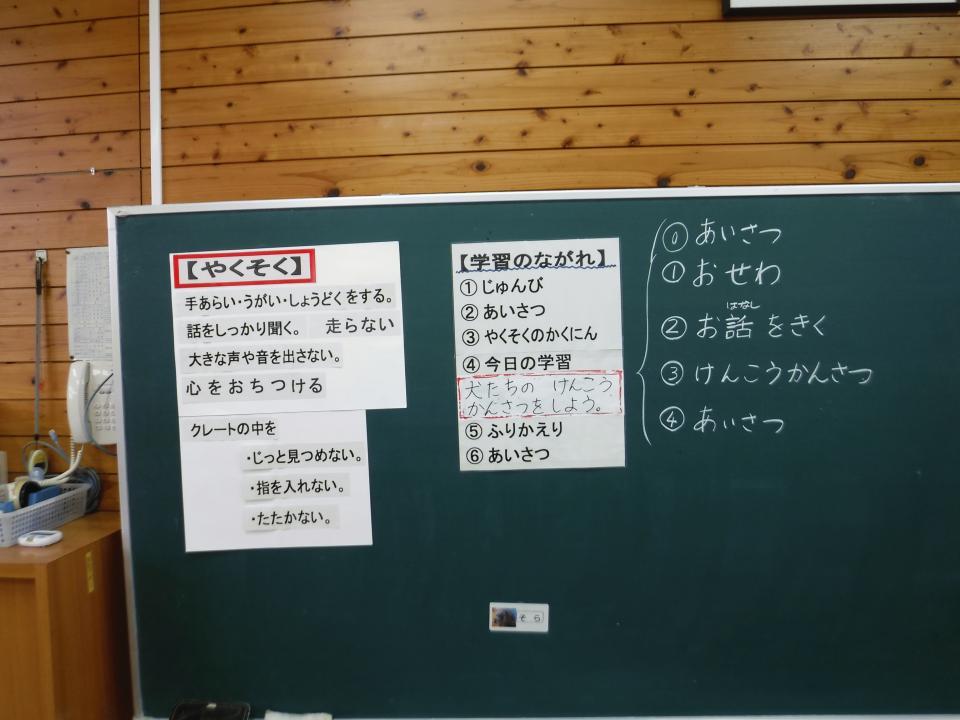 【やくそく】
手あらい・うがい・しょうどくをする。
話をしっかり聞く。 走らない
大きな声や音を出さない。
心をおちつける
クレートの中を
・じっと見つめない。
・指を入れない。
・たたかない。
【学習のながれ】
①じゅんび
②あいさつ
③やくそくのかくにん
④今日の学習
犬たちの けんこう
かんさつをしよう。
⑤ふりかえり
⑥あいさつ
⓪あいさつ
①おせわ
はなし
②お話をきく
③けんこうかんさつ
④あいさつ
そら